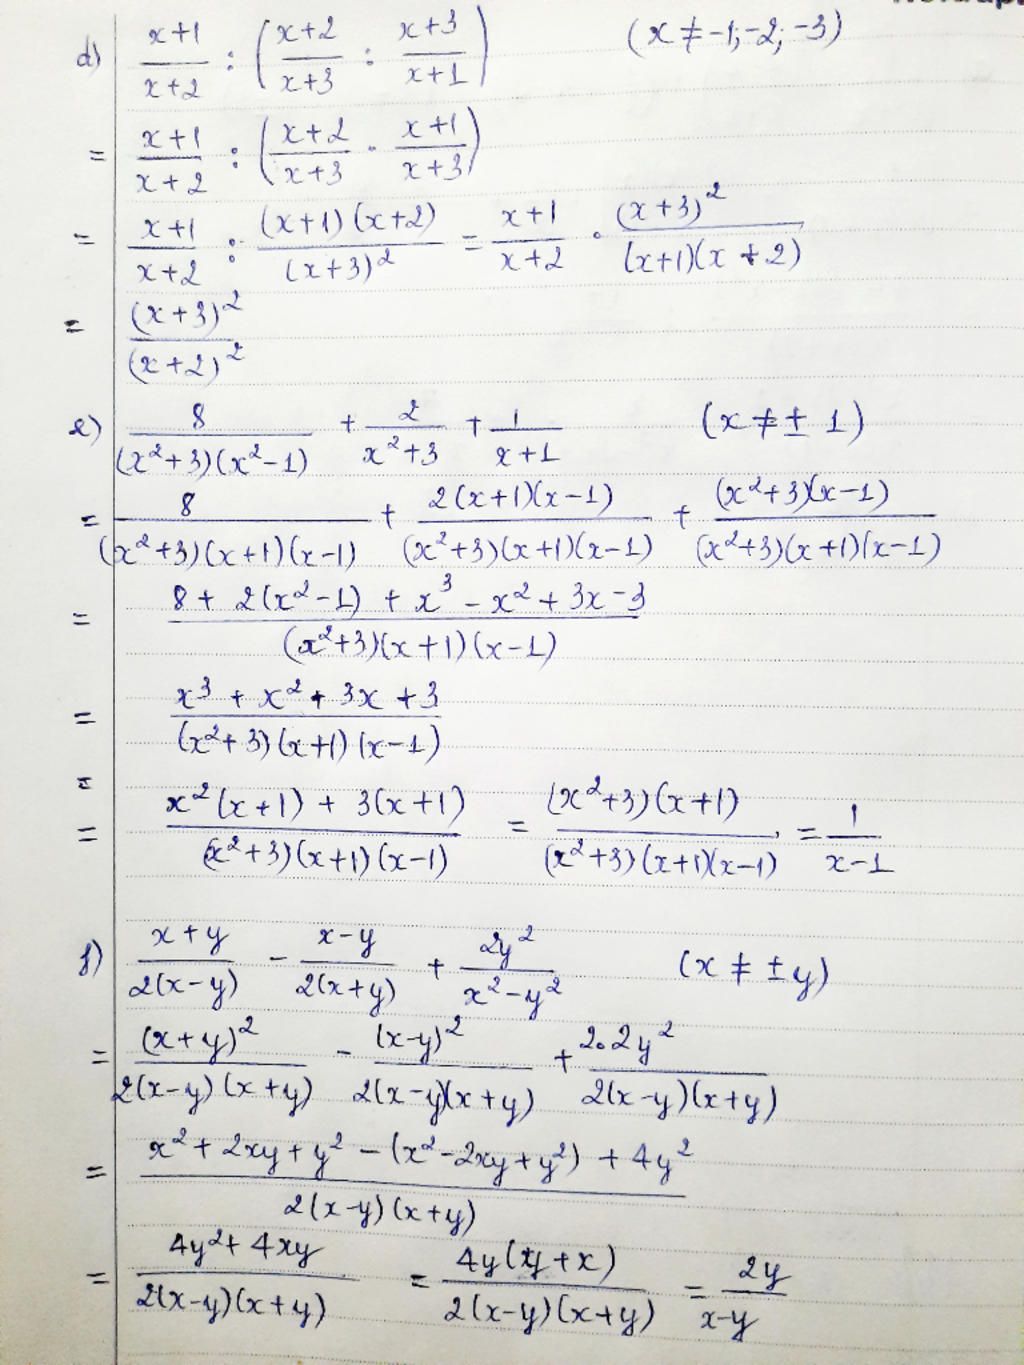 d) \frac{x+1}{x+2} : \left(\frac{x+2}{x+3} : \frac{x+3}{x+1}\right) (x ≠ -1; -2; -3)
= \frac{x+1}{x+2} : \left(\frac{x+2}{x+3} \cdot \frac{x+1}{x+3}\right)
= \frac{x+1}{x+2} : \frac{(x+1)(x+2)}{(x+3)^2} = \frac{x+1}{x+2} \cdot \frac{(x+3)^2}{(x+1)(x+2)}
= \frac{(x+3)^2}{(x+2)^2}
e) \frac{8}{(x^2+3)(x^2-1)} + \frac{2}{x^2+3} + \frac{1}{x+1} (x ≠ ± 1)
= \frac{8}{(x^2+3)(x+1)(x-1)} + \frac{2(x+1)(x-1)}{(x^2+3)(x+1)(x-1)} + \frac{(x^2+3)(x-1)}{(x^2+3)(x+1)(x-1)}
= \frac{8+2(x^2-1)+x^3-x^2+3x-3}{(x^2+3)(x+1)(x-1)}
= \frac{x^3+x^2+3x+3}{(x^2+3)(x+1)(x-1)}
=
= \frac{x^2(x+1)+3(x+1)}{(x^2+3)(x+1)(x-1)} = \frac{(x^2+3)(x+1)}{(x^2+3)(x+1)(x-1)} = \frac{1}{x-1}
f) \frac{x+y}{2(x-y)} - \frac{x-y}{2(x+y)} + \frac{2y^2}{x^2-y^2} (x ≠ ±y)
= \frac{(x+y)^2}{2(x-y)(x+y)} - \frac{(x-y)^2}{2(x-y)(x+y)} + \frac{2.2y^2}{2(x-y)(x+y)}
= \frac{x^2+2xy+y^2-(x^2-2xy+y^2)+4y^2}{2(x-y)(x+y)}
= \frac{4y^2+4xy}{2(x-y)(x+y)} = \frac{4y(y+x)}{2(x-y)(x+y)} = \frac{2y}{x-y}